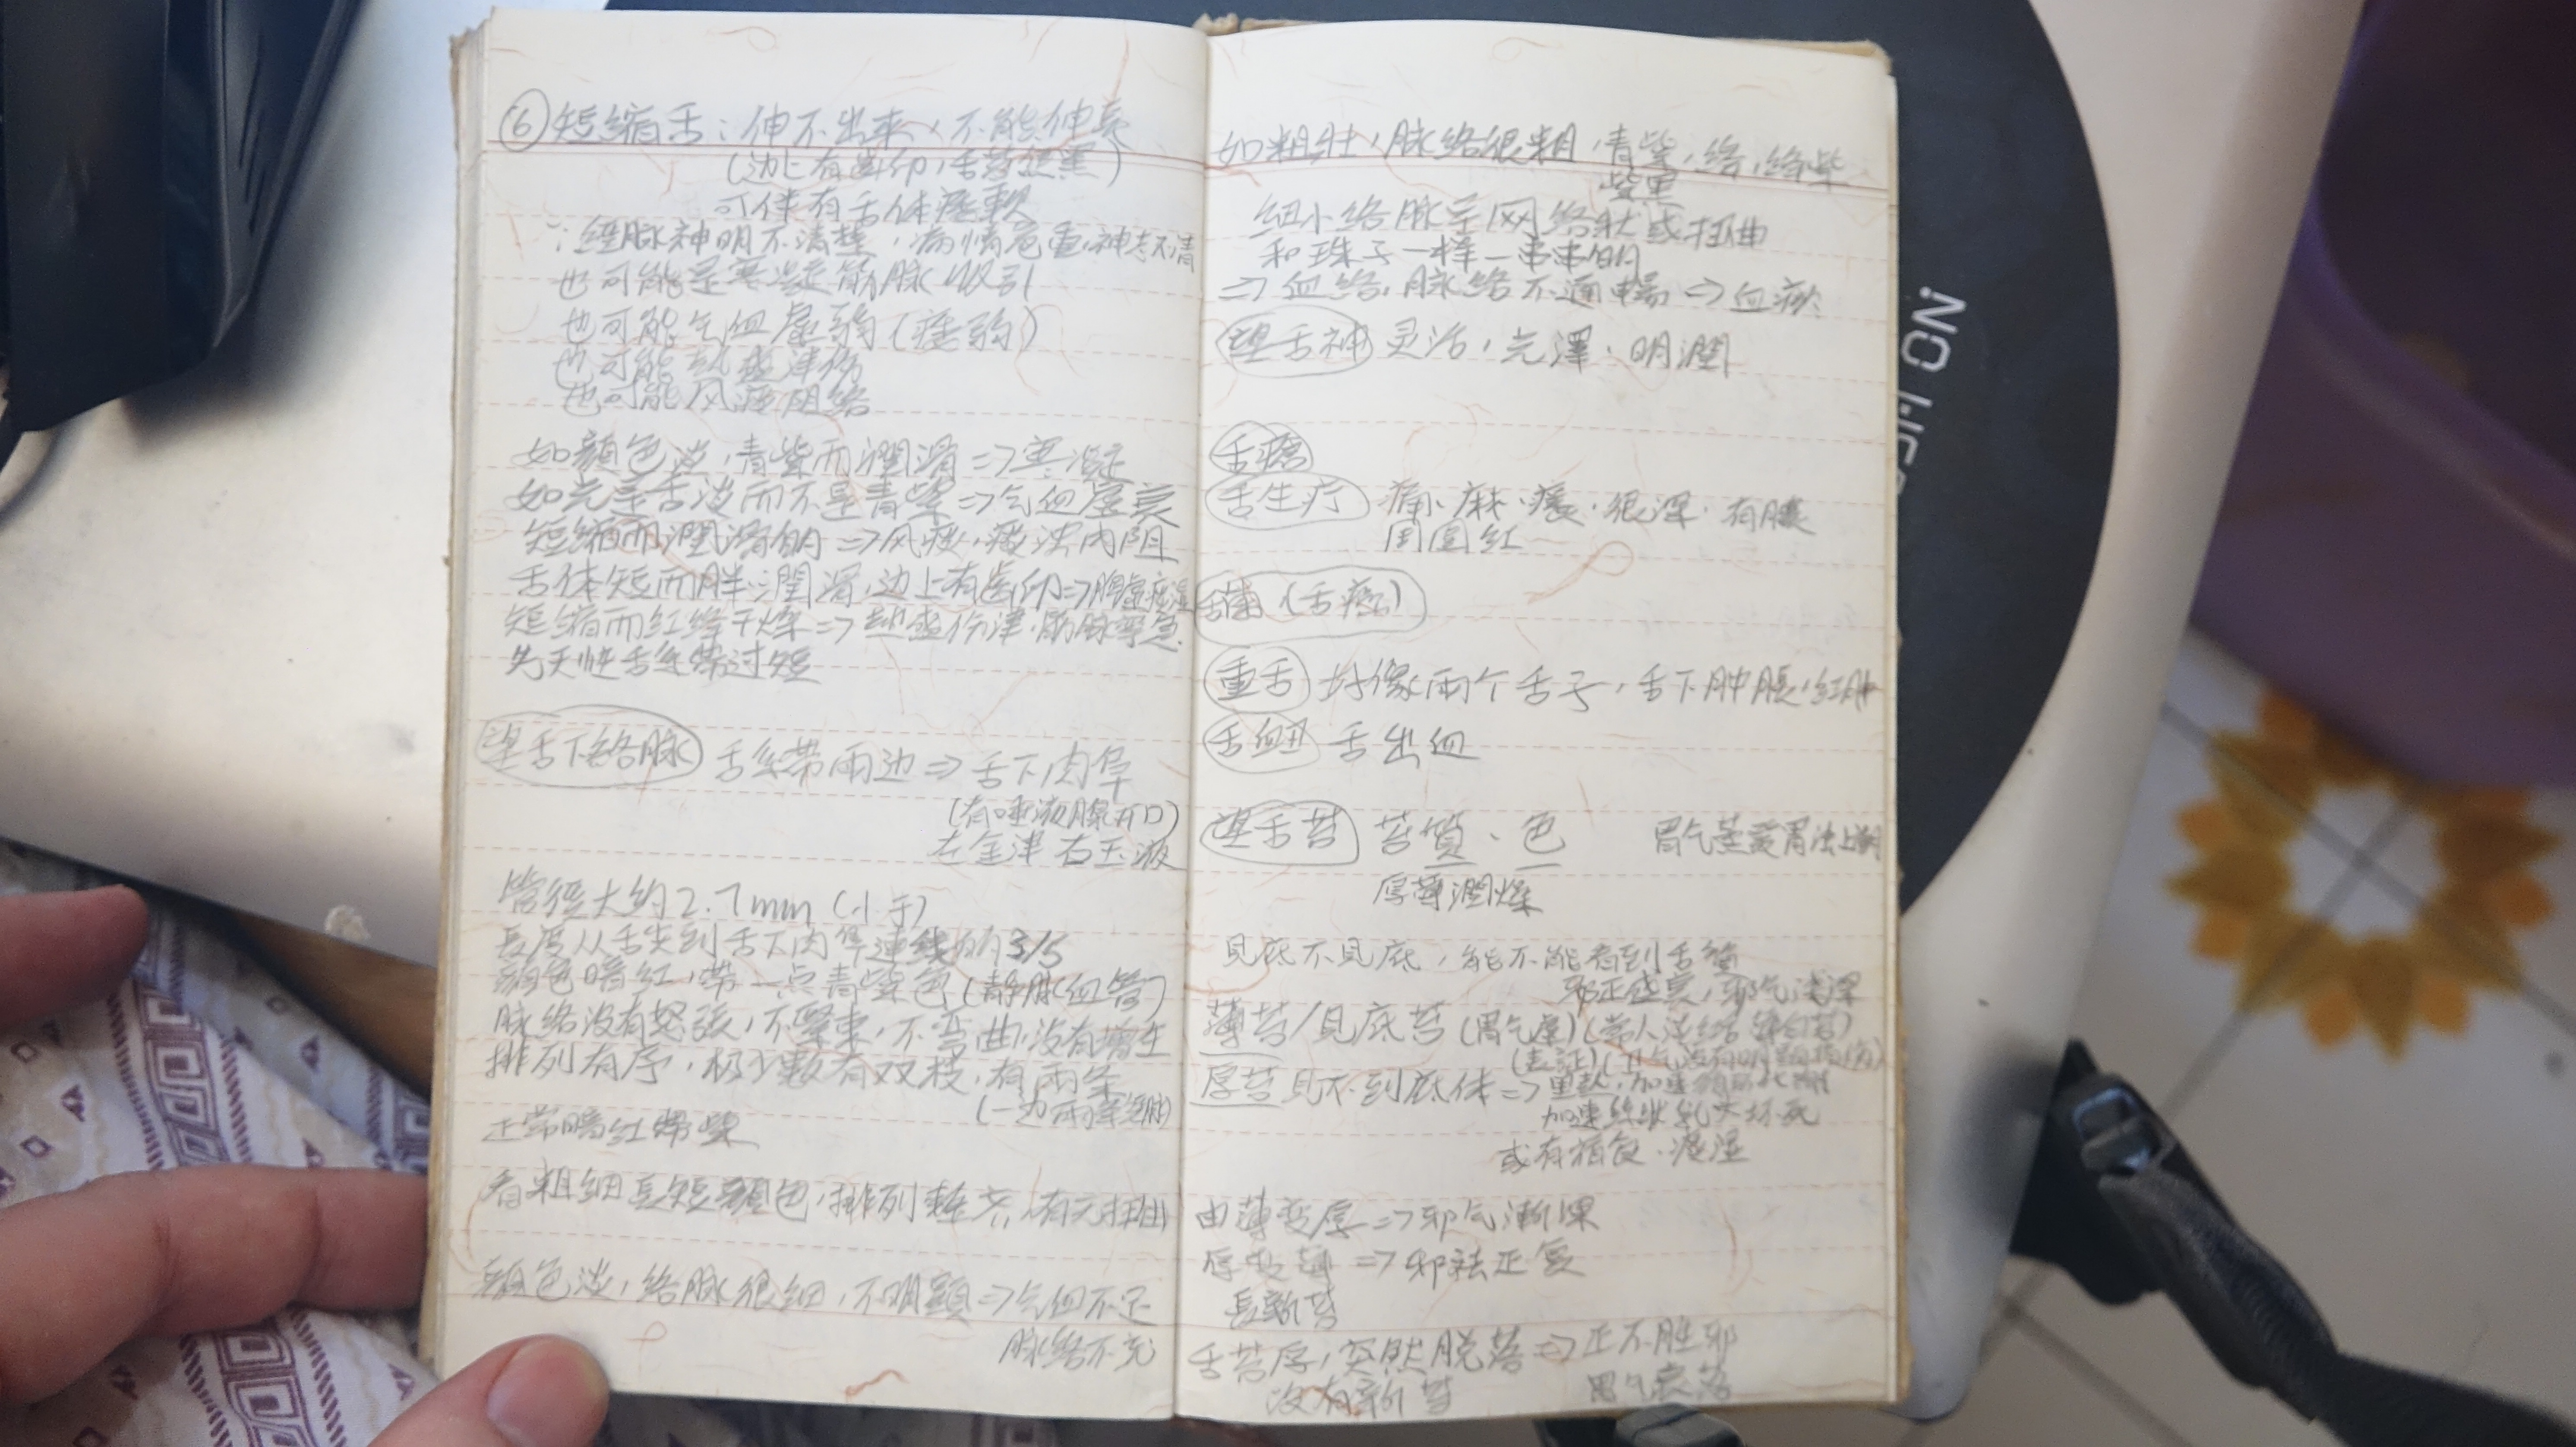 ⑥短缩舌：伸不出来，不能伸长
(边上有齿印，舌苔短黑)
可伴有舌体痿軟
∵经脉神明不清楚，病情危重，神志不清
也可能是寒凝筋脉吸引
也可能气血虚弱(痿弱)
也可能热盛津伤
也可能风痰阻络
如顏色淡，青紫而潤滑=>寒凝
如光是舌淡而不是青紫=>气血虚衰
短缩而潤滑的=>风痰，痰浊内阻
舌体短而胖，潤滑，边上有齿印=>脾虚痰湿
短缩而红绛干燥=>热盛伤津，筋脉挛急
先天性舌系带过短
望舌下络脉 舌系带兩边=>舌下肉阜
(有唾液腺开口)
左金津 右玉液
管径大约2.7mm(小于)
長度从舌尖到舌下肉阜連线的3/5
顏色暗红，带一点青紫色(静脉血管)
脉络没有怒張，不緊束，不弯曲，没有增生
排列有序，极少數有双枝，有兩条
(一边兩条短脉)
正常暗红带紫
看粗细長短顏色，排列整齐，有无扭曲
顏色淡，络脉很细，不明顯=>气血不足
脉络不充
如粗壮，脉络很粗，青紫，绛，绛紫
紫黑
细小络脉呈网络狀或扭曲
和珠子一样一串串的
=>血络，脉络不通暢=>血瘀
望舌神 灵活，光澤，明潤
舌瘡
舌生疔 痛、麻、癢、很深、有膿
周圍红
舌菌(舌癌)
重舌 好像兩个舌子，舌下肿脹，红肿
舌衄 舌出血
望舌苔 苔質、色 胃气蒸發胃浊上朝
厚薄潤燥
見底不見底，能不能看到舌質
邪正盛衰，邪气浅深
薄苔/見底苔(胃气虚)(常人淡红舌 薄白苔)
(表証)(正气没有明顯损伤)
厚苔見不到底体=>里热，加速细胞代謝
加速丝狀乳头坏死
或有積食、痰湿
由薄变厚=>邪气漸深
厚变薄=>邪祛正复
長新苔
舌苔厚，突然脱落=>正不胜邪
没有新苔 胃气衰落